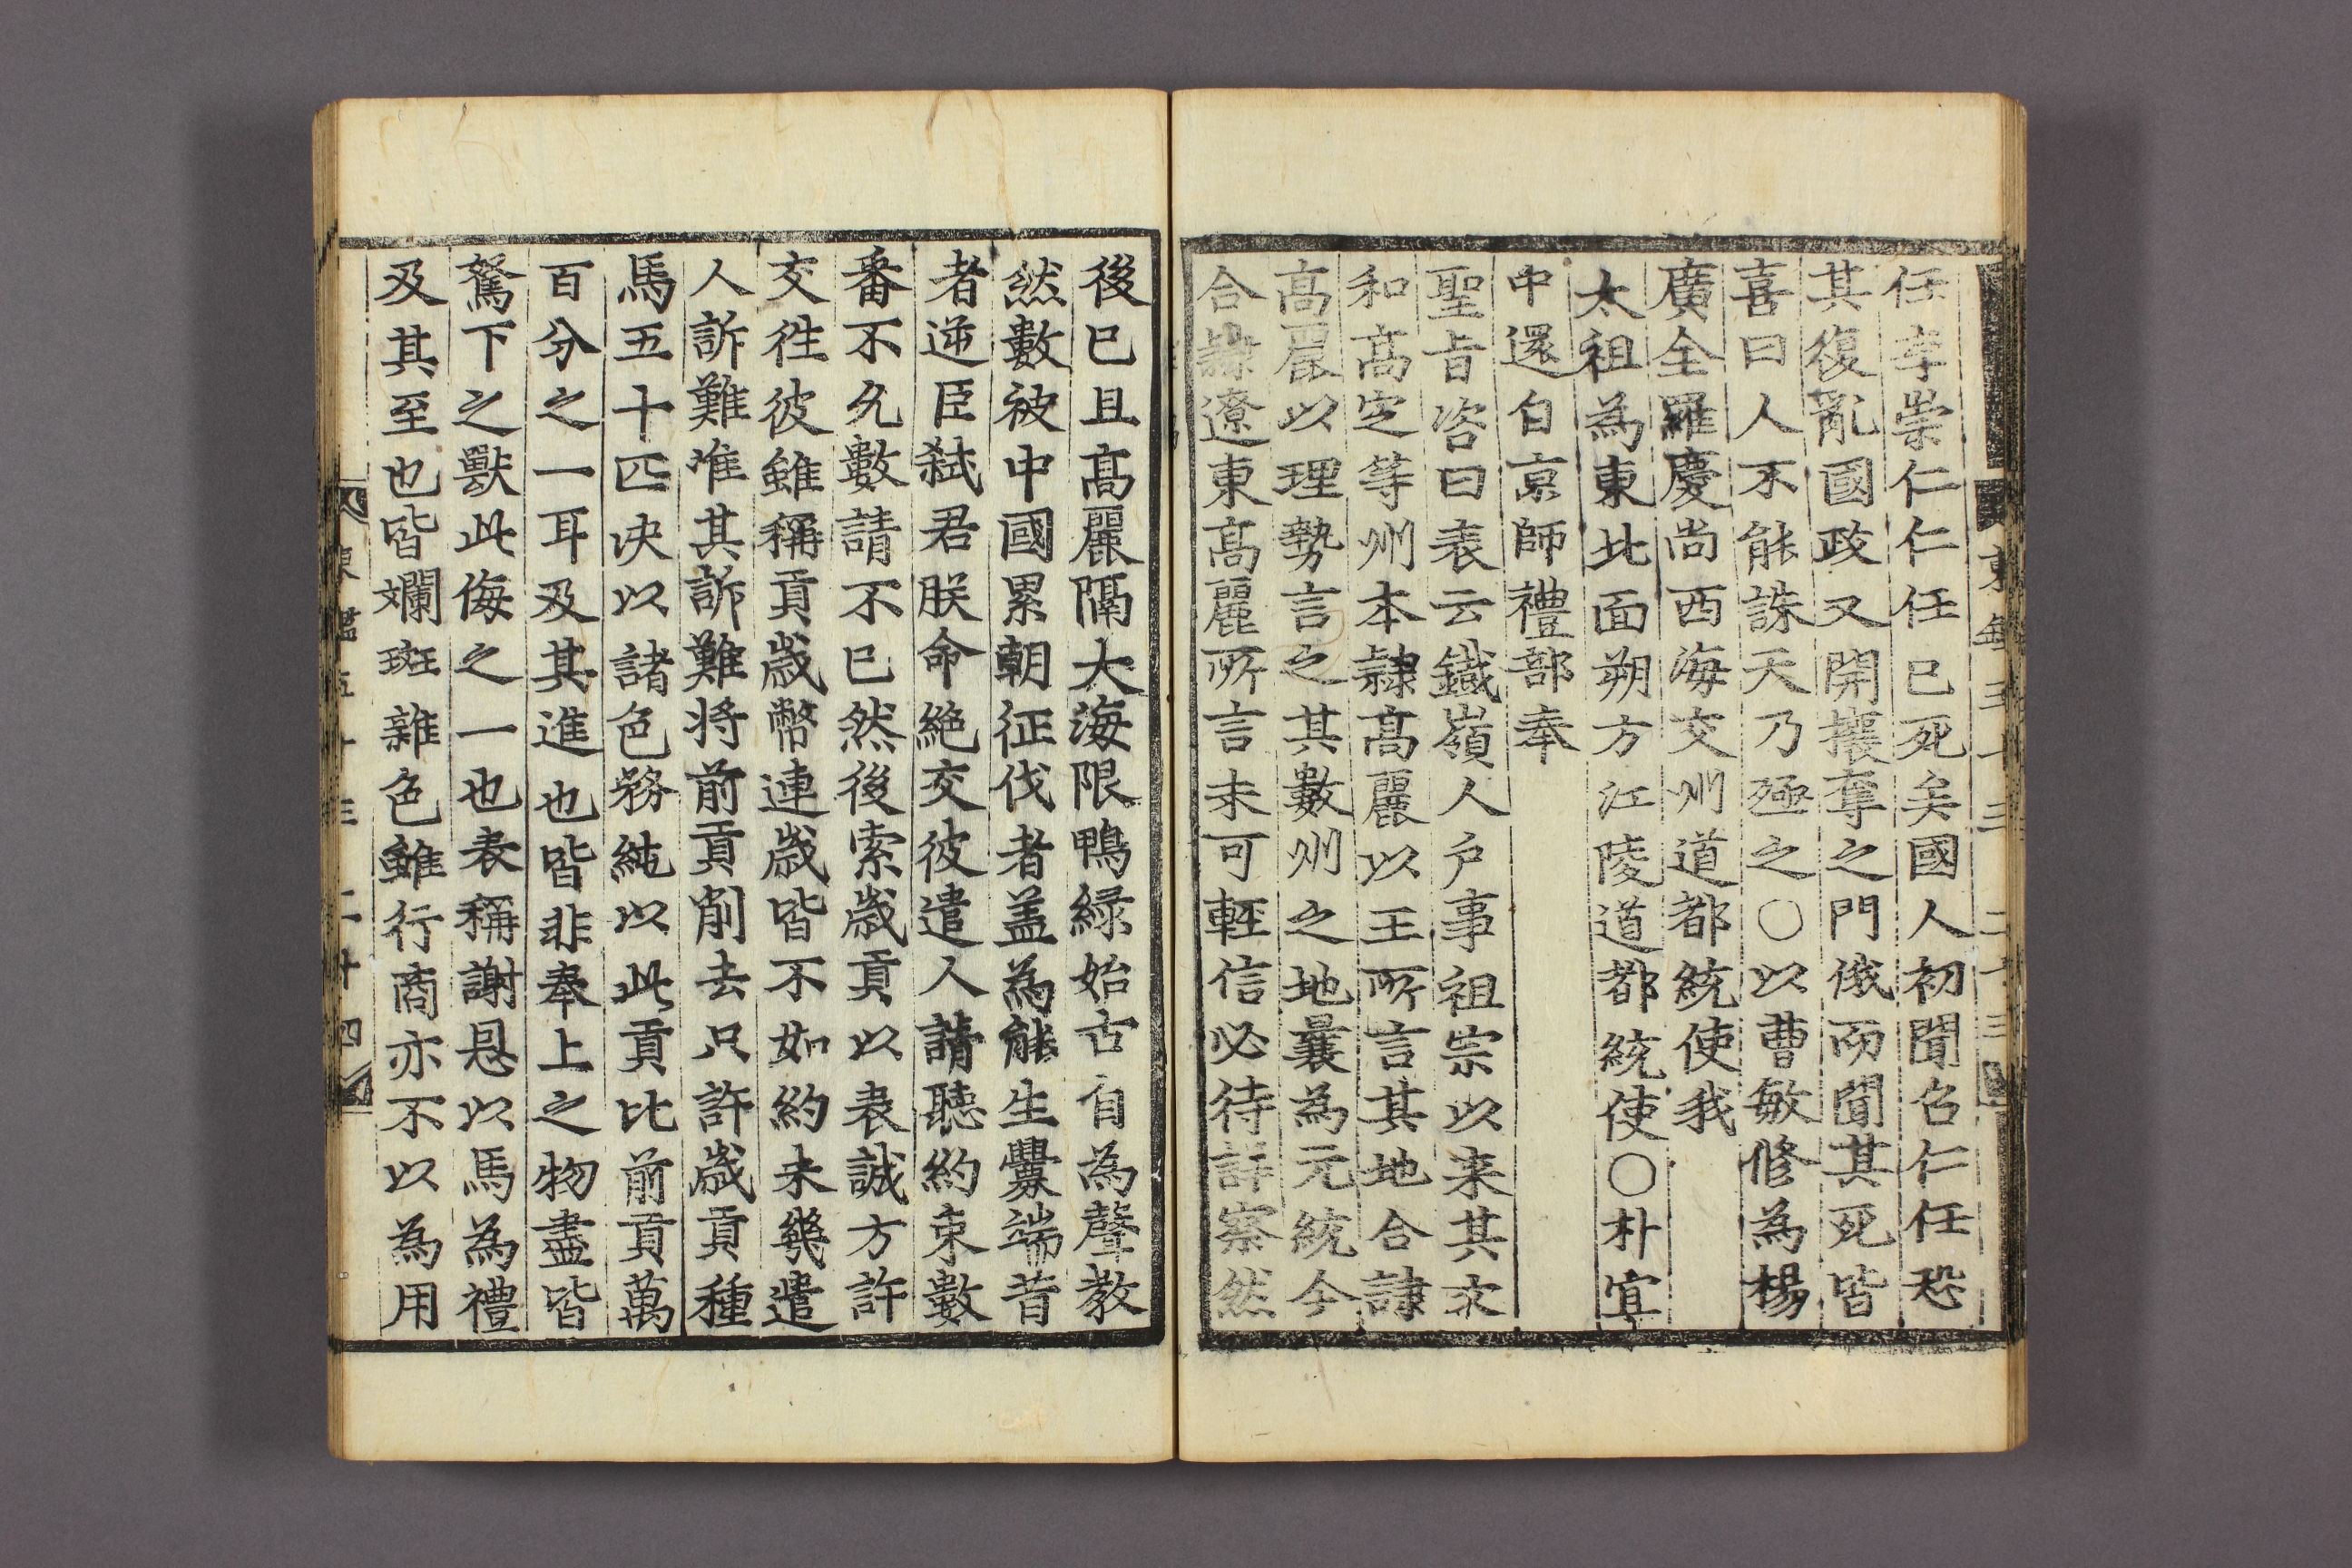 任孝崇仁仁任已死矣國人初聞召仁任恐
其復亂國政又開攘奪之門俄而聞其死皆
喜曰人不能誅天乃殛之○以曹敏修為楊
廣全羅慶尚西海交州道都統使我
太祖為東北面朔方江陵道都統使○朴宜
中還自京師禮部奉
聖旨咨曰表云鐵嶺人戶事祖宗以来其文
和高定等州本隸高麗以王所言其地合隸
高麗以理勢言之其數州之地曩為元統今
合隸遼東高麗所言未可輕信必待詳察然
後已且高麗隔大海限鴨綠始古自為聲教
然數被中國累朝征伐者盖為能生釁端昔
者逆臣弑君朕命絶交彼遣人請聽約束數
番不允數請不已然後索歲貢以表誠方許
交徃彼雖稱貢歲幣連歲皆不如約未幾遣
人訴難准其訴難將前貢削去只許歲貢種
馬五十匹决以諸色務純以此貢比前貢萬
百分之一耳及其進也皆非奉上之物盡皆
駑下之獸此侮之一也表稱謝恩以馬為禮
及其至也皆斕斑雜色雖行商亦不以為用
東鑑五十三 二十四